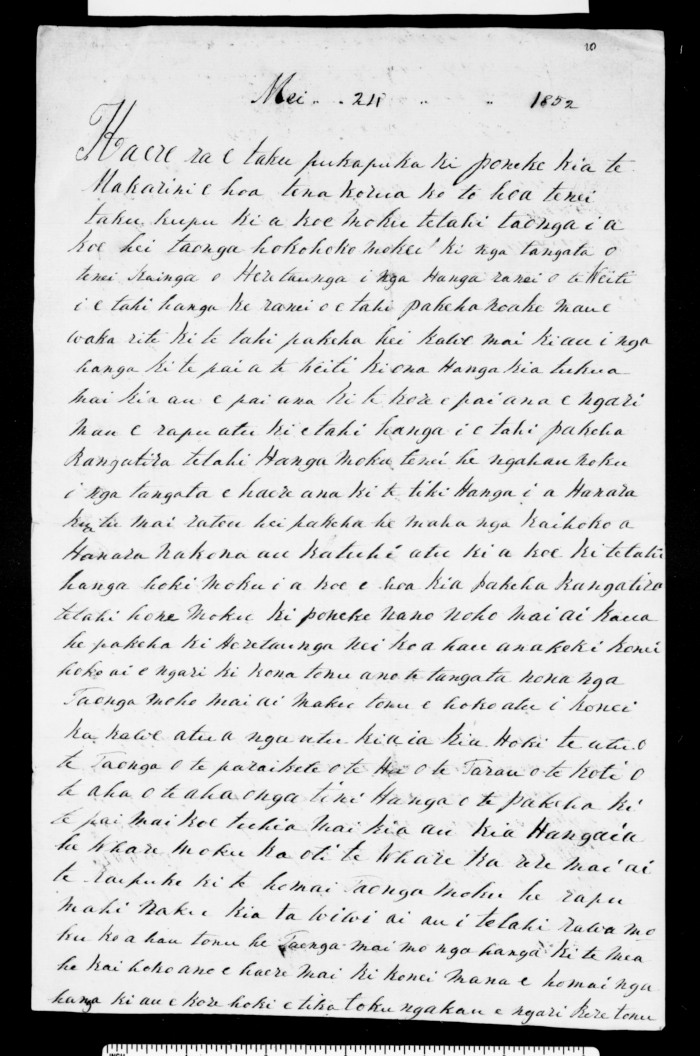 10
Mei 24 1852
Haere ra e taku pukapuka ki poneke kia te
Makarini e hoa tena korua ko to hoa tenei
taku kupu ki a koe moku tetahi taonga i a
koe hei taonga hokohoko moku ki nga tangata o
tenei kainga o Heretaunga i nga Hanga ranei o te Weiti
i e tahi hanga ke ranei o e tahi pakeha noake mau e
waka rite ki te tahi pakeha hei kawe mai ki au i nga
hanga ki te pai a te Weiti ki ona Hanga kia tukua
mai kia au e pai ana ki te kore e pai ana e ngari
mau e rapu atu ki etahi hanga i e tahi pakeha
Rangatira tetahi Hanga moku tenei he ngahau noku
i nga tangata e haere ana ki te tiki Hanga i a Hanara
tu mai ratou hei pakeha he maha nga kaihoko a
Hanara nakona au ka tuhi atu ki a koe ki tetahi
hanga hoki moku i a koe e hoa kia pakeha Rangatira
tetahi hone moku ki poneke nano noho mai ai kaua
he pakeha ki Heretaunga nei ko ahau anake ki konei
hoko ai e ngari ki kona tonu ano te tangata nona nga
Taonga noho mai ai maku tonu e hoko atu i konei
ka kawe atu a nga utu ki a ia kia Hoki te utu o
te Taonga o te paraikete o te Hu o te Tarau o te koti o
te aha o te aha o nga tini Hanga o te pakeha ki
te pai mai koe tuhia mai kia au kia Hangaia
he whare moku ka oti te whare ka rere mai ai
te kaipuke ki te homai Taonga moku he rapu
mahi naku kia ta wiwi ai au i tetahi rawa mo
ku ko a hau tonu he Taonga mai mo nga hanga ki te mea
he kai hoko ano e haere mai ki konei mana e homai nga
hanga ki au e kore hoki e tika toku ngakau e ngari kere tonu